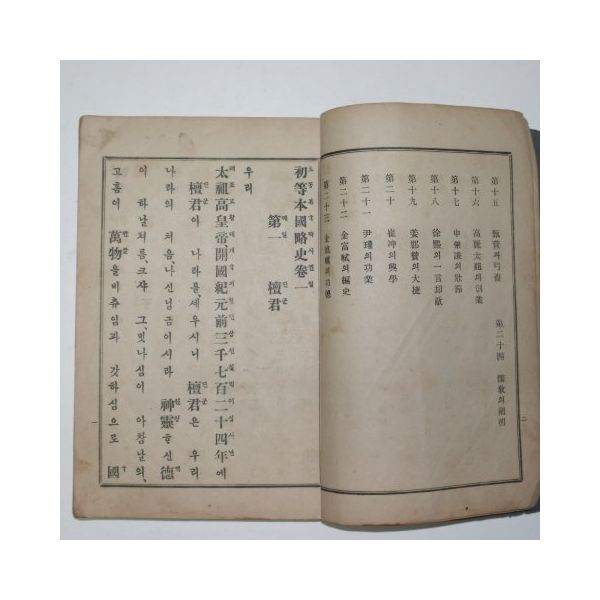 第十五 甄萱과弓裔
第十六 高麗太祖의創業
第十七 申崇謙의壯節
第十八 徐熙의一言却敵
第十九 姜邯贊의大捷
第二十 崔冲의興學
第二十一 尹瓘의功業
第二十二 金富軾의編史
第二十三
第二十四 儒敎의
二
初等本國略史卷一
第一 檀君
우리
太祖高皇帝開國紀元前三千七百二十四年에
檀君이 나라를셰우시니 檀君은 우리
나라의 처음나신님금이시라 神靈을신德
이 하날처름크샤 그빗나심이 아참날의
고흠이 萬物을비츄임과 갓하심으로 國
一